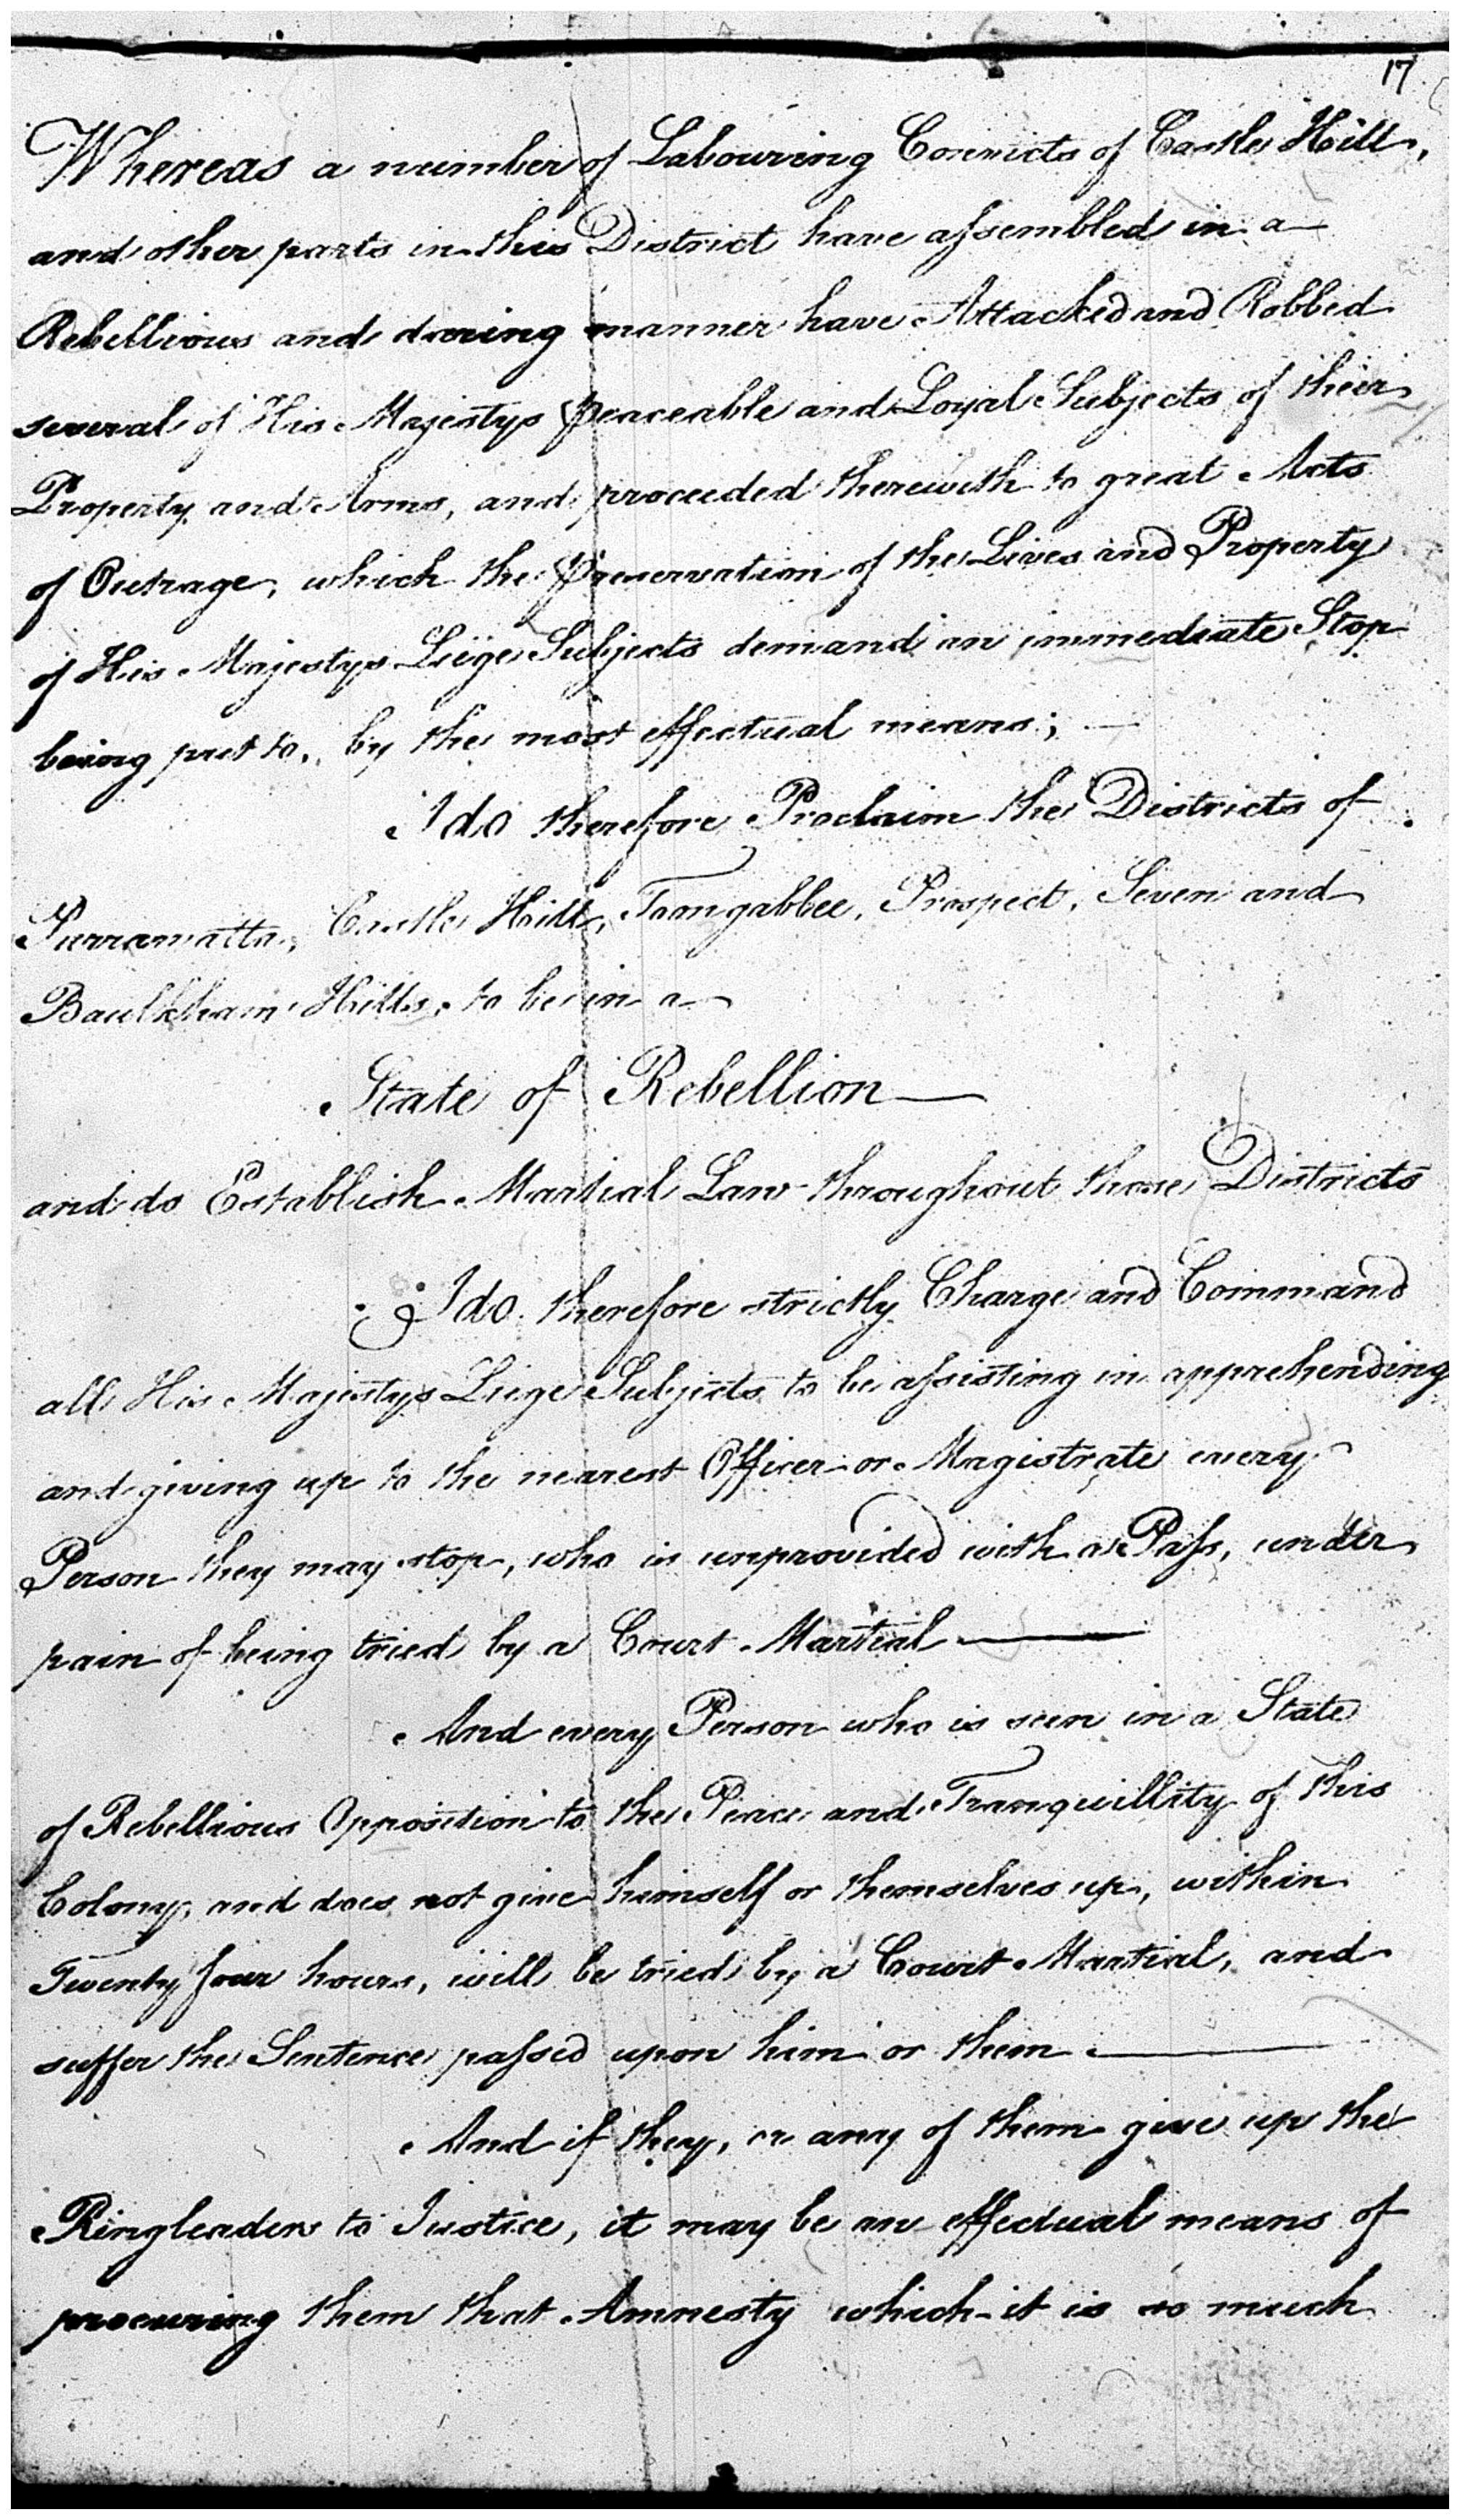 17
Whereas a number of Labouring Convicts of Castle Hill,
and other parts in this District have assembled in a
Rebellious and daring manner have Attacked and Robbed
several of His Majestys peaceable and Loyal Subjects of their
Property and Arms, and proceeded therewith to great Acts
of Outrage, which the Preservation of the Lives and Property
of His Majestys Liege Subjects demand an immediate Stop
being put to, by the most effectual means; —
I do therefore Proclaim the Districts of
Parramatta, Castle Hill, Toongabbee, Prospect, Seven and
Baulkham Hills, to be in a
State of Rebellion —
and do Establish Martial Law throughout those Districts
I do therefore strictly Charge and Command
all His Majestys Liege Subjects to be assisting in apprehending
and giving up to the nearest Officer or Magistrate every
Person they may stop, who is unprovided with a Pass, under
pain of being tried by a Court Martial —
And every Person who is seen in a State
of Rebellious Opposition to the Peace and Tranquillity of this
Colony, and does not give himself or themselves up, within
Twenty four hours, will be tried by a Court Martial, and
suffer the Sentence passed upon him or them —
And if they, or any of them give up the
Ringleaders to Justice, it may be an effectual means of
procuring them that Amnesty which it is so much